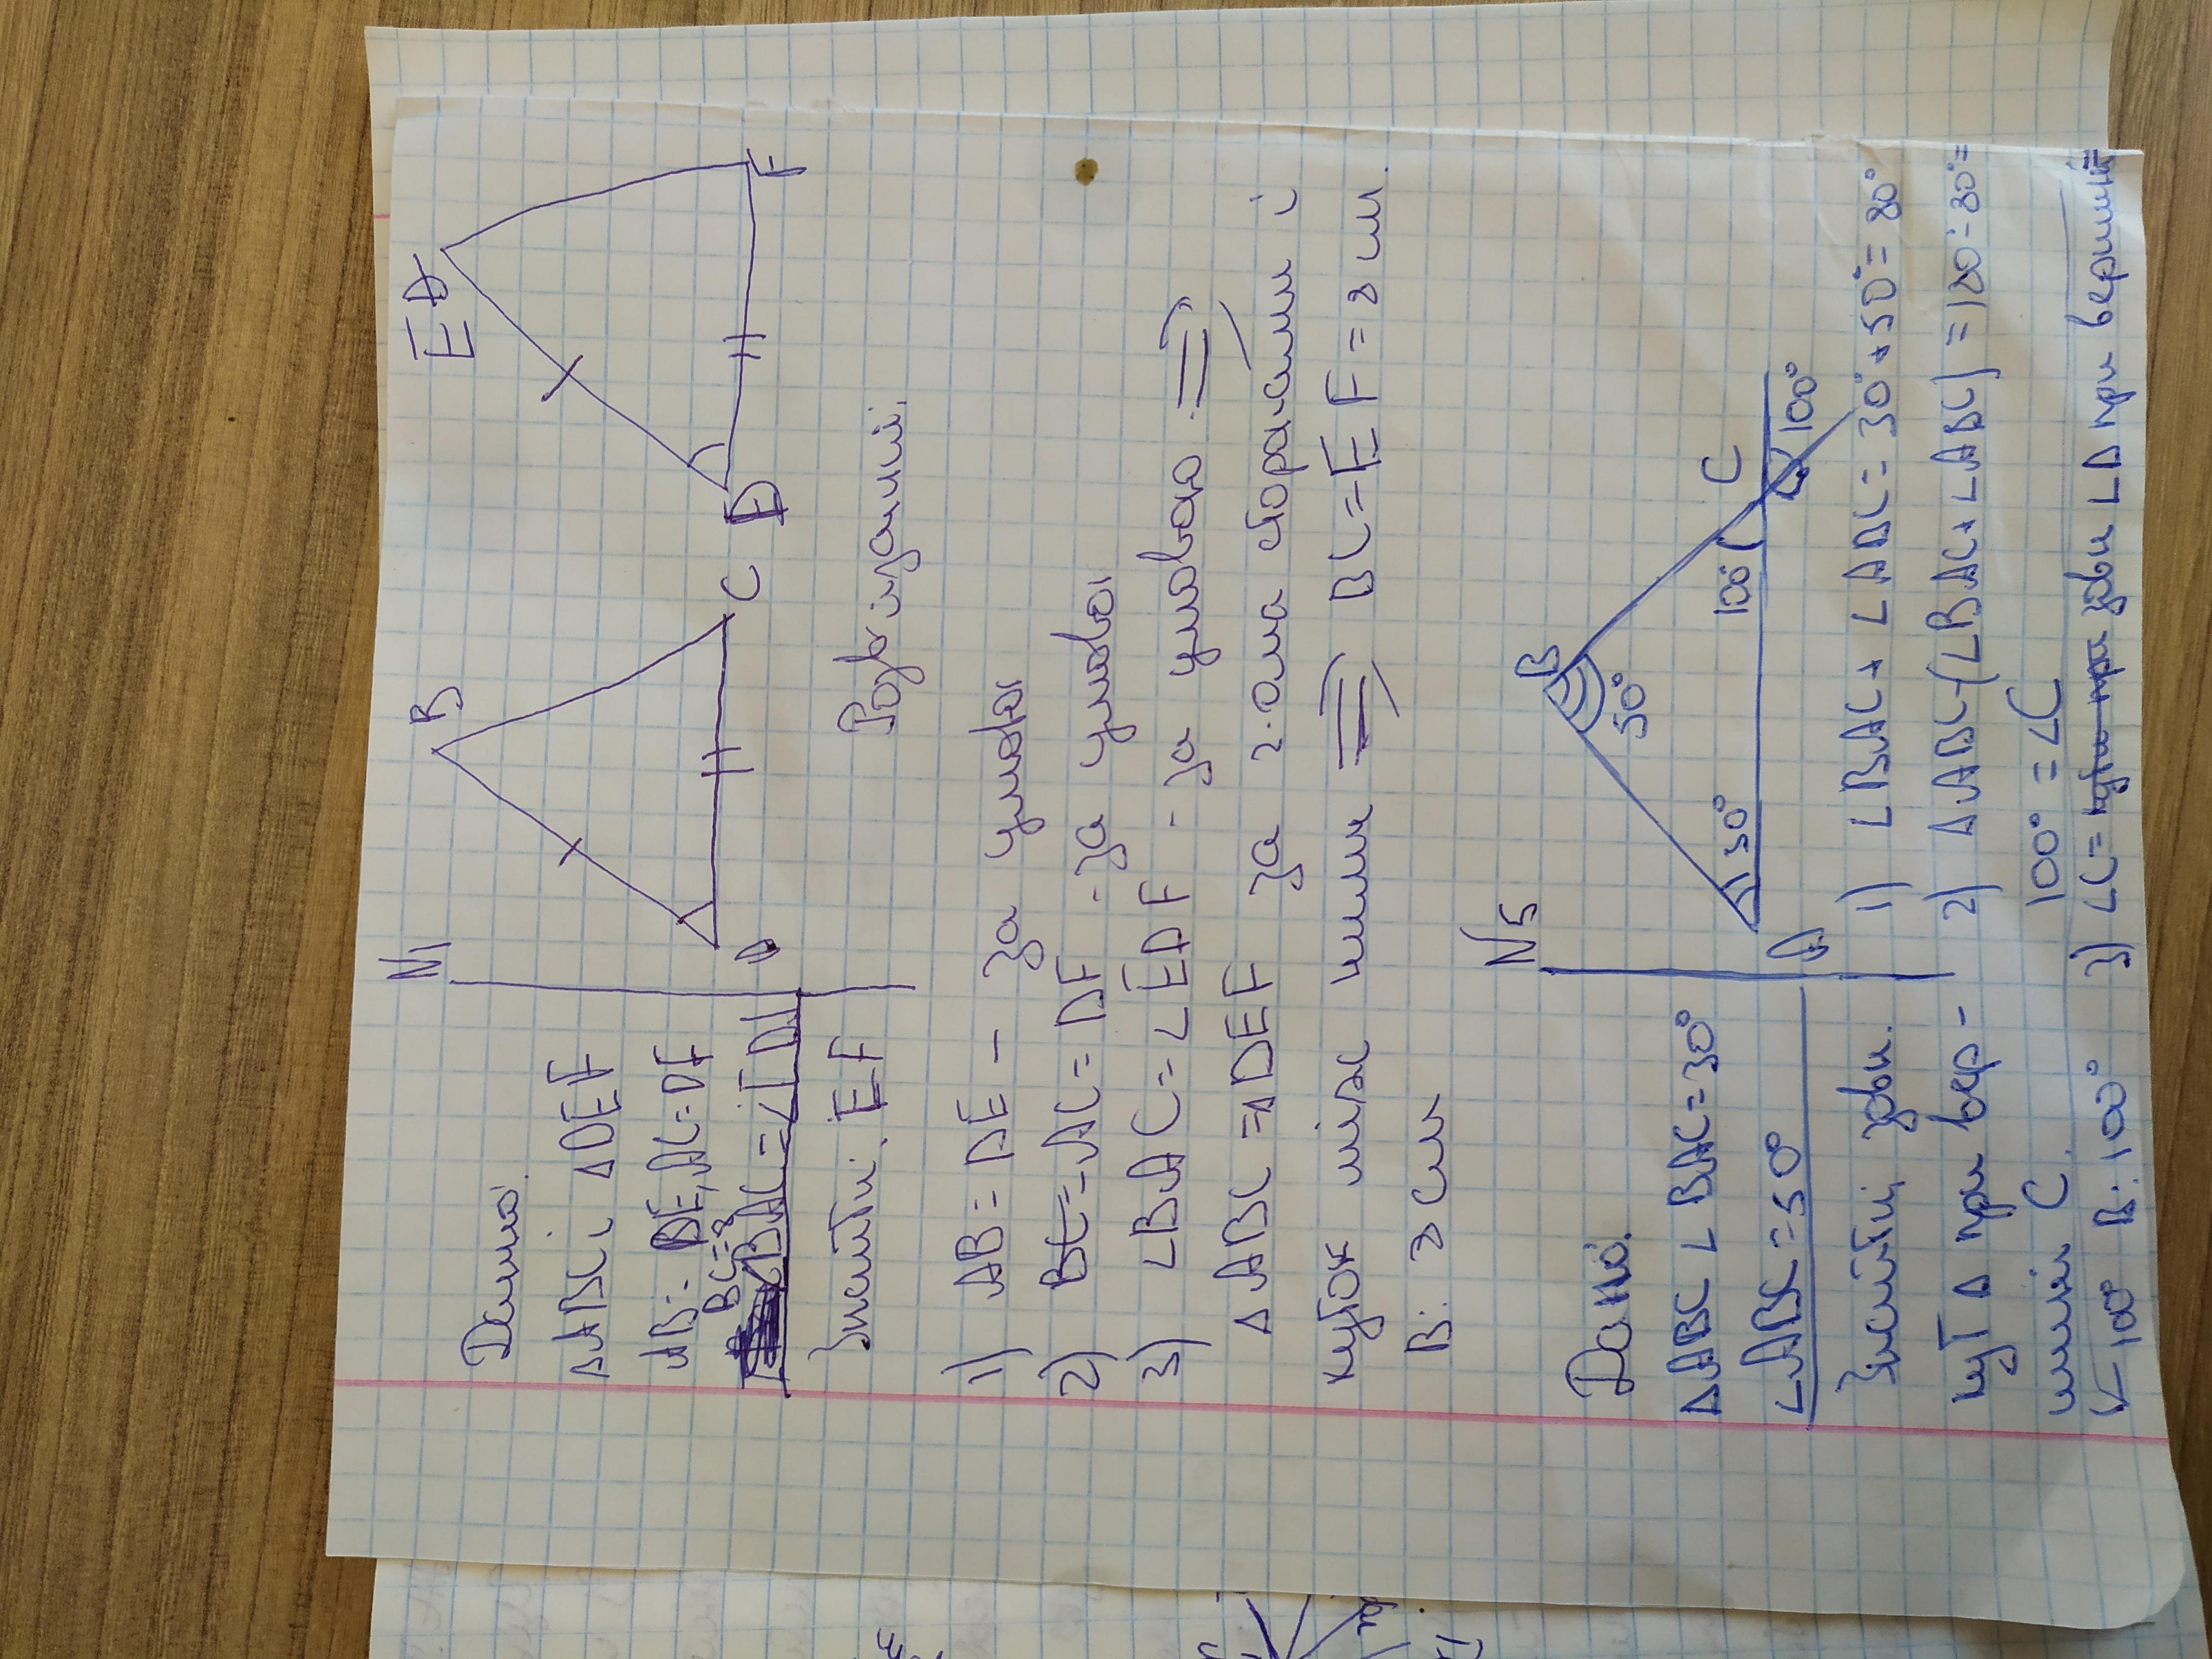 N1
B
E
C
F
Дано:
ΔABC і ΔDEF
AB = DE, AC = DF
BC = 8
∠BAC = ∠EDF
Знайти: EF
Розв'язання:
1) AB = DE - за умовою
2) AC = DF - за умовою
3) ∠BAC = ∠EDF - за умовою ⇒
ΔABC = ΔDEF за 2-ома сторонами і
кутом між ними ⇒ BC = EF = 8 см.
В: 8 см
N5
Дано:
ΔABC ∠BAC = 30°
∠ABC = 50°
Знайти зовн.
кут Δ при вер-
шині C.
B
50°
30°
100°
C
100°
A
1) ∠BAC + ∠ABC = 30° + 50° = 80°
2) ΔABC - (∠BAC + ∠ABC) = 180° - 80° =
100° = ∠C
3) ∠C = зовн ∠Δ при вершині
100° В: 100°